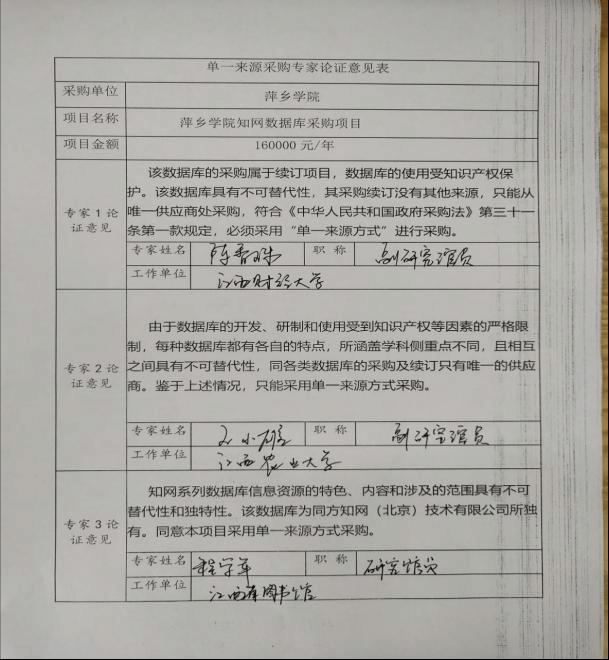 单一来源采购专家论证意见表
采购单位 萍乡学院
项目名称 萍乡学院知网数据库采购项目
项目金额 160000 元/年
专家1论证意见
该数据库的采购属于续订项目，数据库的使用受知识产权保
护。该数据库具有不可替代性，其采购续订没有其他来源，只能从
唯一供应商处采购，符合《中华人民共和国政府采购法》第三十一
条第一款规定，必须采用“单一来源方式”进行采购。
专家姓名 职 称 副研究馆员
工作单位 江西财经大学
专家2论证意见
由于数据库的开发、研制和使用受到知识产权等因素的严格限
制，每种数据库都有各自的特点，所涵盖学科侧重点不同，且相互
之间具有不可替代性，同各类数据库的采购及续订只有唯一的供应
商。鉴于上述情况，只能采用单一来源方式采购。
专家姓名 职 称 副研究馆员
工作单位 江西农业大学
专家3论证意见
知网系列数据库信息资源的特色、内容和涉及的范围具有不可
替代性和独特性。该数据库为同方知网（北京）技术有限公司所独
有。同意本项目采用单一来源方式采购。
专家姓名 程学军 职 称 研究馆员
工作单位 江西省图书馆